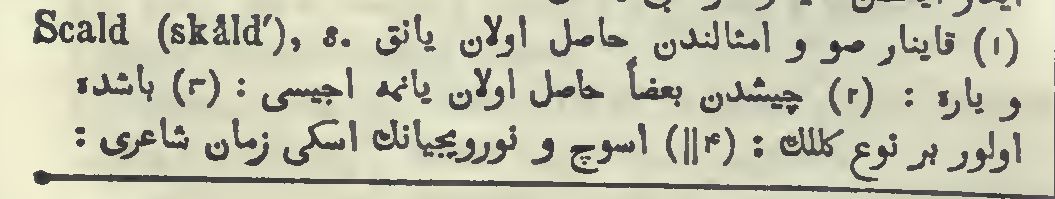 Scald (skåld′), s. (۱) قاینار صو و امثالندن حاصل اولان یانق
و یاره : (۲) چیشدن بعضاً حاصل اولان یانمه اجیسی : (۳) باشده
اولور بر نوع کللك : (۴||) اسوچ و نوروجیانك اسکی زمان شاعری :